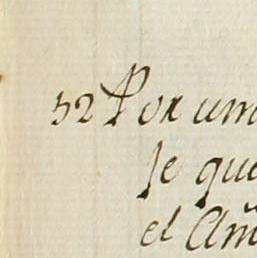 52 Por um
se que
el Añ